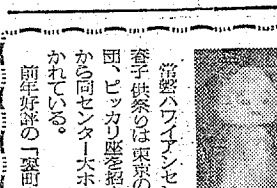 常磐ハワイアンセン
春子供祭りは東京の
団、ピッカリ座を招
から同センター大ホ
かれている。
前年好評の「裏町